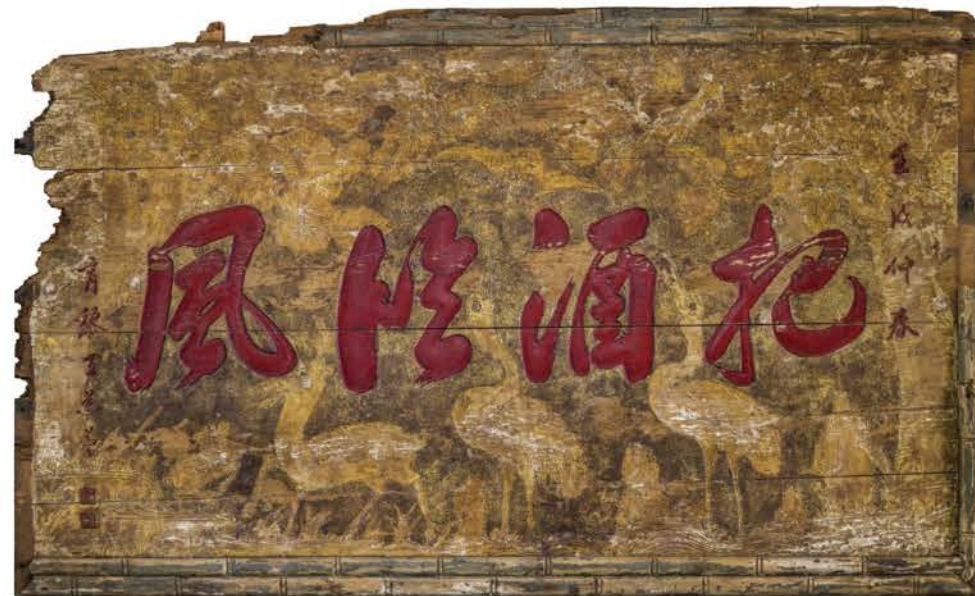 壬戌仲春
把酒臨風